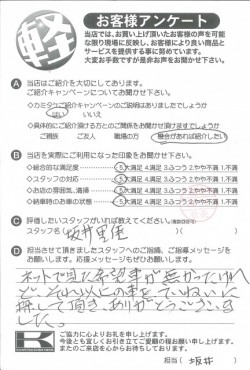 軽
お客様アンケート
当店では、お買い上げ頂いたお客様の声を可能な
限り現場に反映し、お客様により良い商品と
サービスを提供する事に努めています。
大変お手数ですが是非お声をお聞かせ下さい。
A 当店はご紹介を大切にしてあります。
ご紹介キャンペーンについてお聞かせ下さい。
◇カミタウンご紹介キャンペーンのご説明はありましたでしょうか
はい いいえ
◇具体的にご紹介頂ける方との関係をお聞かせ頂けますでしょうか
ご親族 ご友人 職場の方 機会があれば紹介したい
B 当店を実際にご利用になった印象をお聞かせ下さい。
◇総合的な満足度 5.大満足 4.満足 3.ふつう 2.やや不満 1.不満
◇スタッフの対応 5.大満足 4.満足 3.ふつう 2.やや不満 1.不満
◇お店の雰囲気、清掃 5.大満足 4.満足 3.ふつう 2.やや不満 1.不満
◇納車時のお車の状態 5.大満足 4.満足 3.ふつう 2.やや不満 1.不満
C 評価したいスタッフがいれば教えてください。
スタッフ名( 坂井里佳
D 担当させて頂きましたスタッフへのご指摘、ご指導メッセージを
お願いします。応援メッセージもぜひお願いします。
ネットで見た希望車が無かったけれ
ど、それ以上の車をていねいに
探して頂き、ありがとうございま
した。
ご協力に心よりお礼を申し上げます。
今後とも宜しくお引き立てご愛顧の程お願い申し上げます。
またのご来店を心からお待ちしております。
担当( 坂井 )